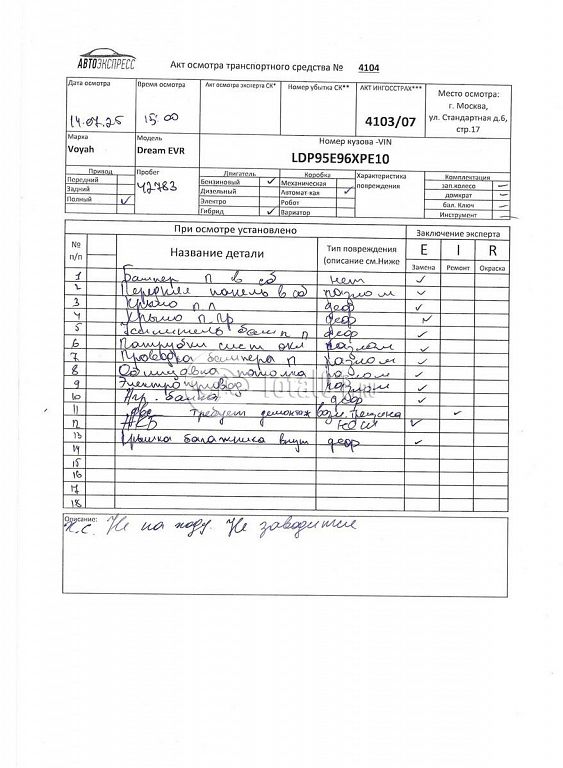 АВТОЭКСПРЕСС
Акт осмотра транспортного средства № 4104
Дата осмотра Время осмотра Акт осмотра эксперта СК* Номер убытка СК** АКТ ИНГОССТРАХ*** Место осмотра:
г. Москва,
ул. Стандартная д.6,
стр.17
14.07.25 15 00 4103/07
Марка Модель Номер кузова -VIN
Voyah Dream EVR LDP95E96XPE10
Привод Пробег Двигатель Коробка Характеристика повреждения Комплектация
Передний 42783 Бензиновый ✓ Механическая зап.колесо —
Задний Дизельный Автомат кая ✓ домкрат —
Полный ✓ Электро Робот бал. Ключ —
Гибрид ✓ Вариатор Инструмент —
При осмотре установлено Заключение эксперта
№ п/п Название детали Тип повреждения (описание см.Ниже E I R
Замена Ремонт Окраска
1 Бампер П в сб нет ✓
2 Передняя панель в сб разлом ✓
3 Крыло п л деф ✓
4 Крыло п. пр деф ✓
5 Усилитель бамп п деф ✓
6 Патрубки сист охл разлом ✓
7 Проводка бампера п разлом ✓
8 Облицовка потолка разлом ✓
9 Электропривод разлом ✓
10 балка деф ✓
11 двс Требует демонтаж ✓
12 АКБ ✓
13 Крышка багажника внут деф ✓
14
15
16
17
18
Описание:
Не на ходу. Не заводится